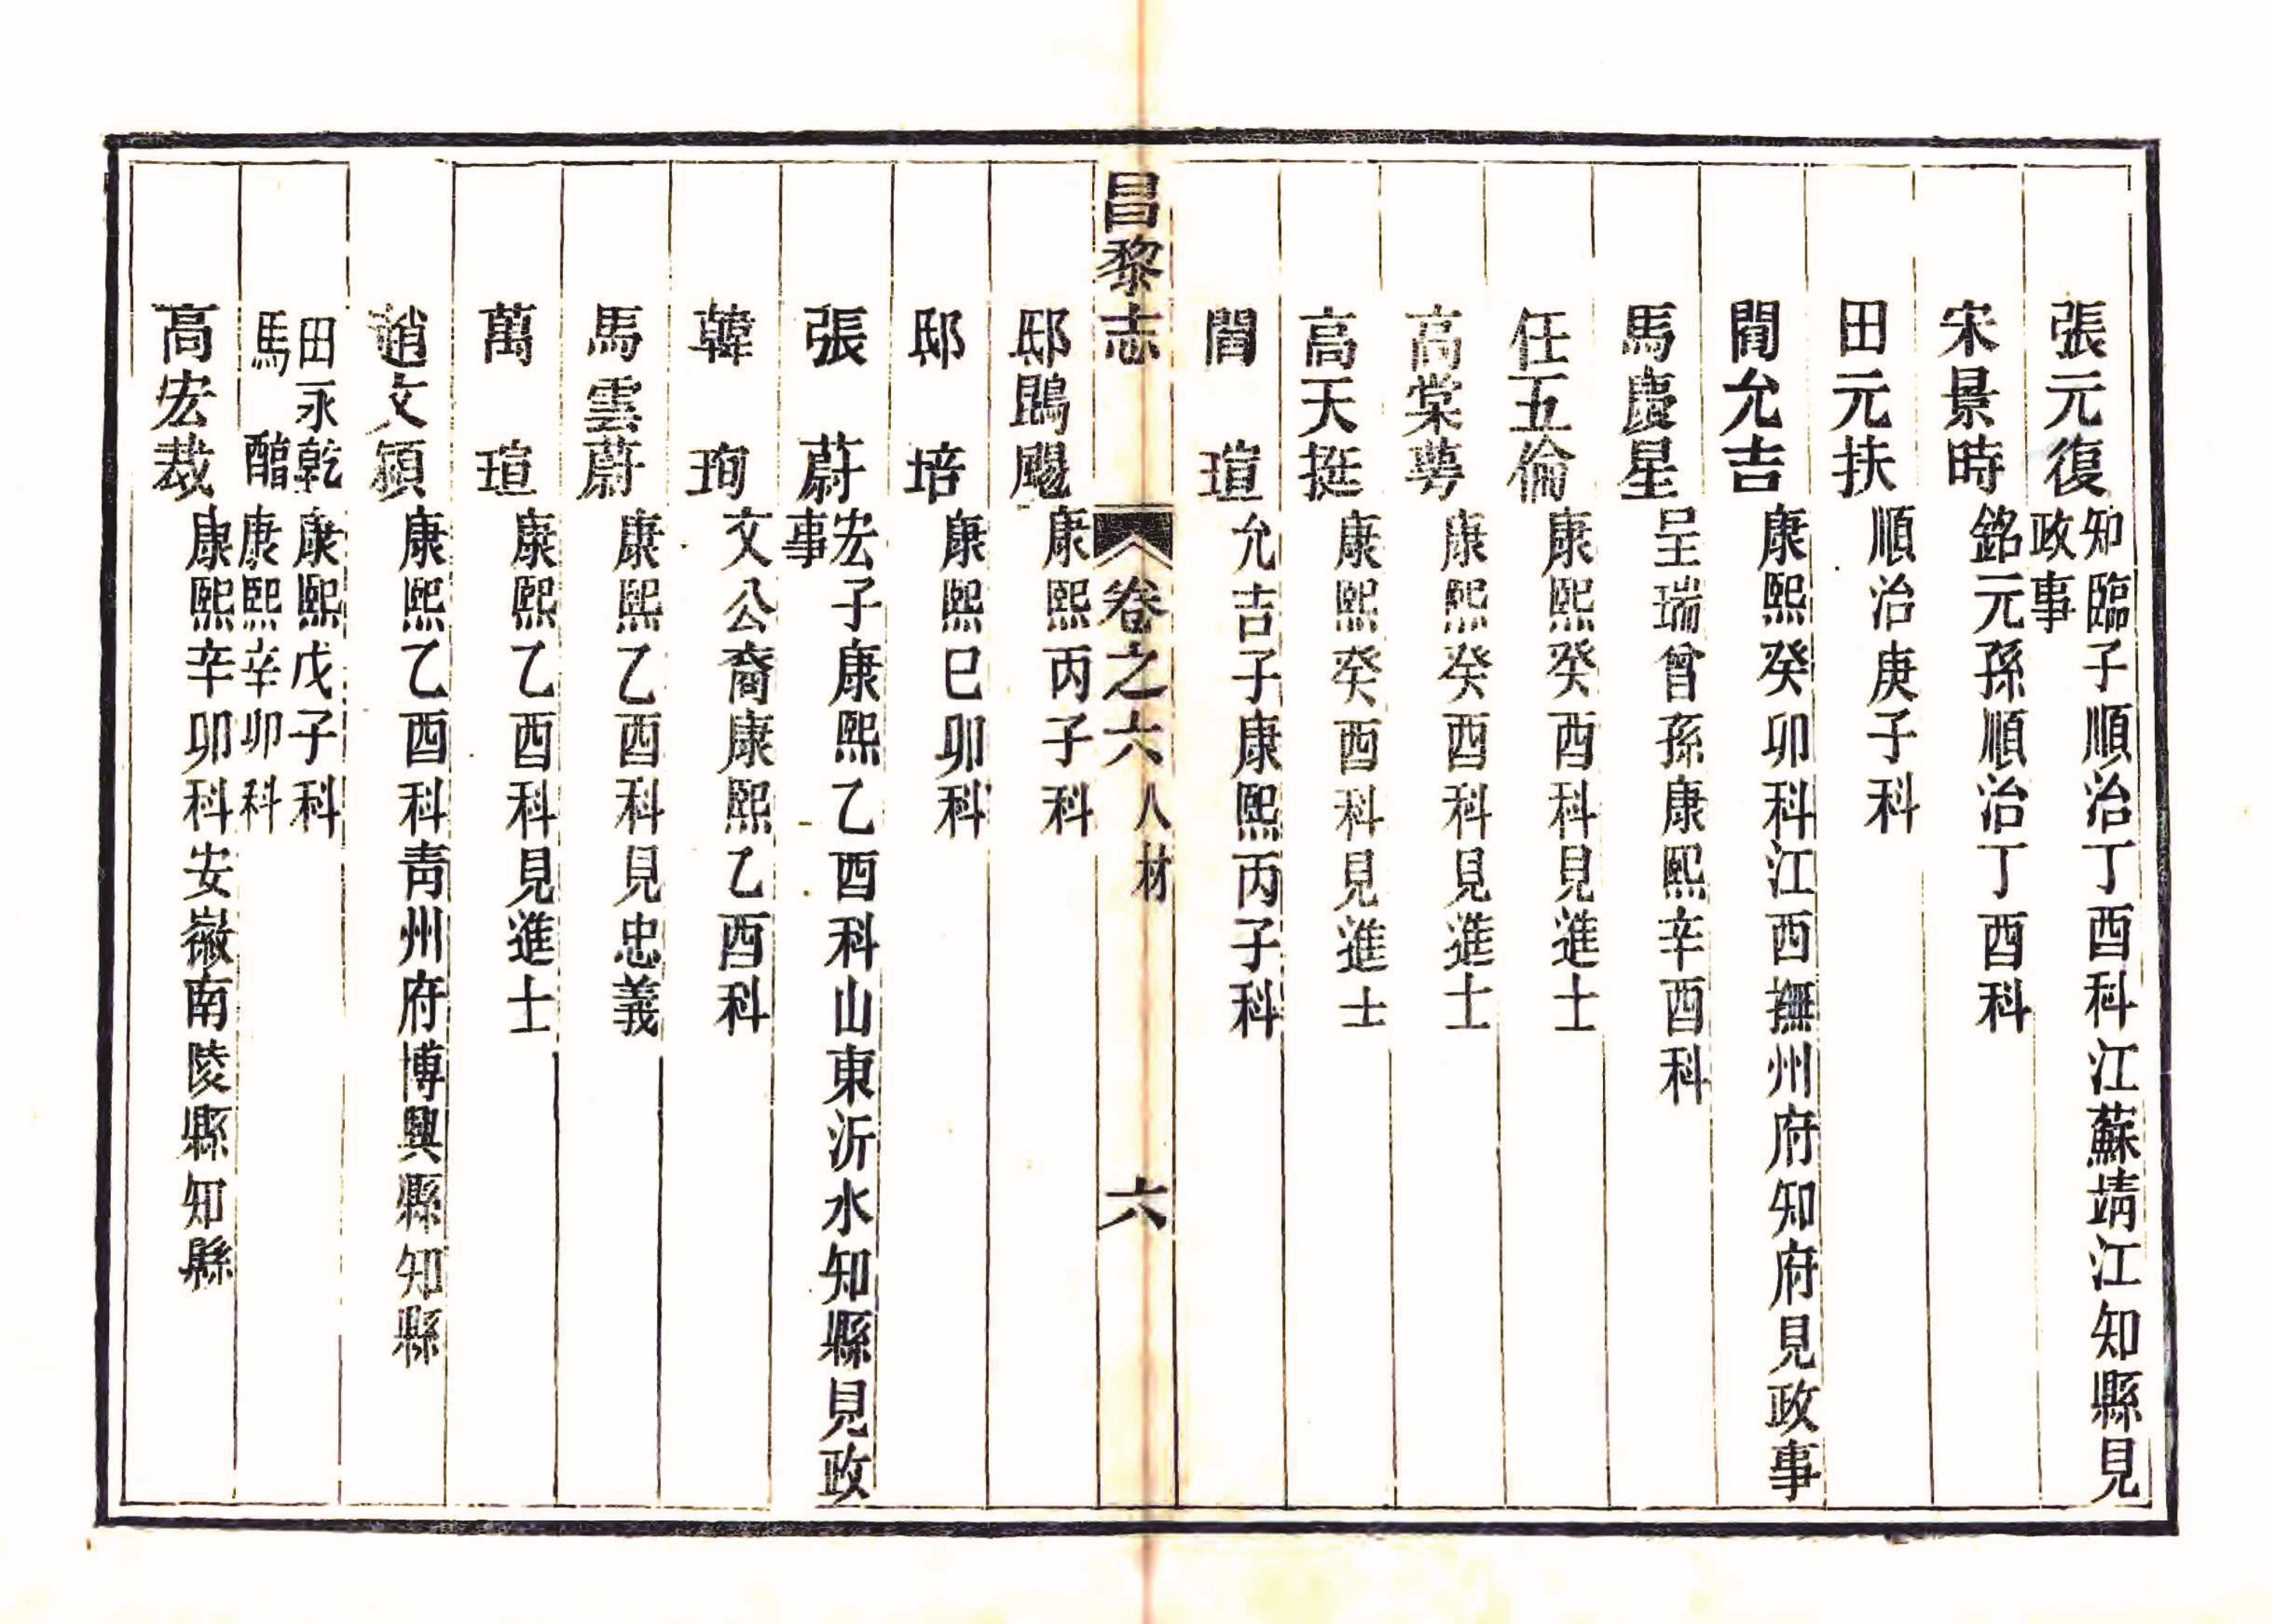 張元復 知臨子順治丁酉科江蘇靖江知縣見
政事
宋景時 銘元孫順治丁酉科
田元扶 順治庚子科
閻允吉 康熙癸卯科江西撫州府知府見政事
馬慶星 呈瑞曾孫康熙辛酉科
任五倫 康熙癸酉科見進士
高棠萼 康熙癸酉科見進士
高天挺 康熙癸酉科見進士
閻瑄 允吉子康熙丙子科
昌黎志 卷之六 人材 六
邸鵾颺 康熙丙子科
邸培 康熙己卯科
張蔚 宏子康熙乙酉科山東沂水知縣見政
事
韓珣 文公裔康熙乙酉科
馬雲蔚 康熙乙酉科見忠義
萬瑄 康熙乙酉科見進士
趙文穎 康熙乙酉科青州府博興縣知縣
田永乾 康熙戊子科
馬 康熙辛卯科
高宏裁 康熙辛卯科安徽南陵縣知縣